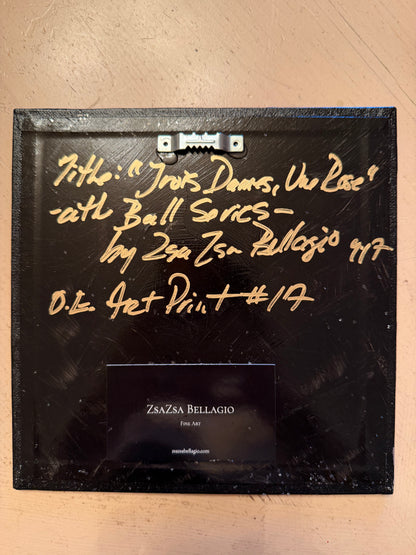 Title: "Trois Dames, Une Rose"
Ball Series -
by Zsa Zsa Bellagio
O.E. Art Print #17
ZSAZSA BELLAGIO
FINE ART
zsazsabellagio.com